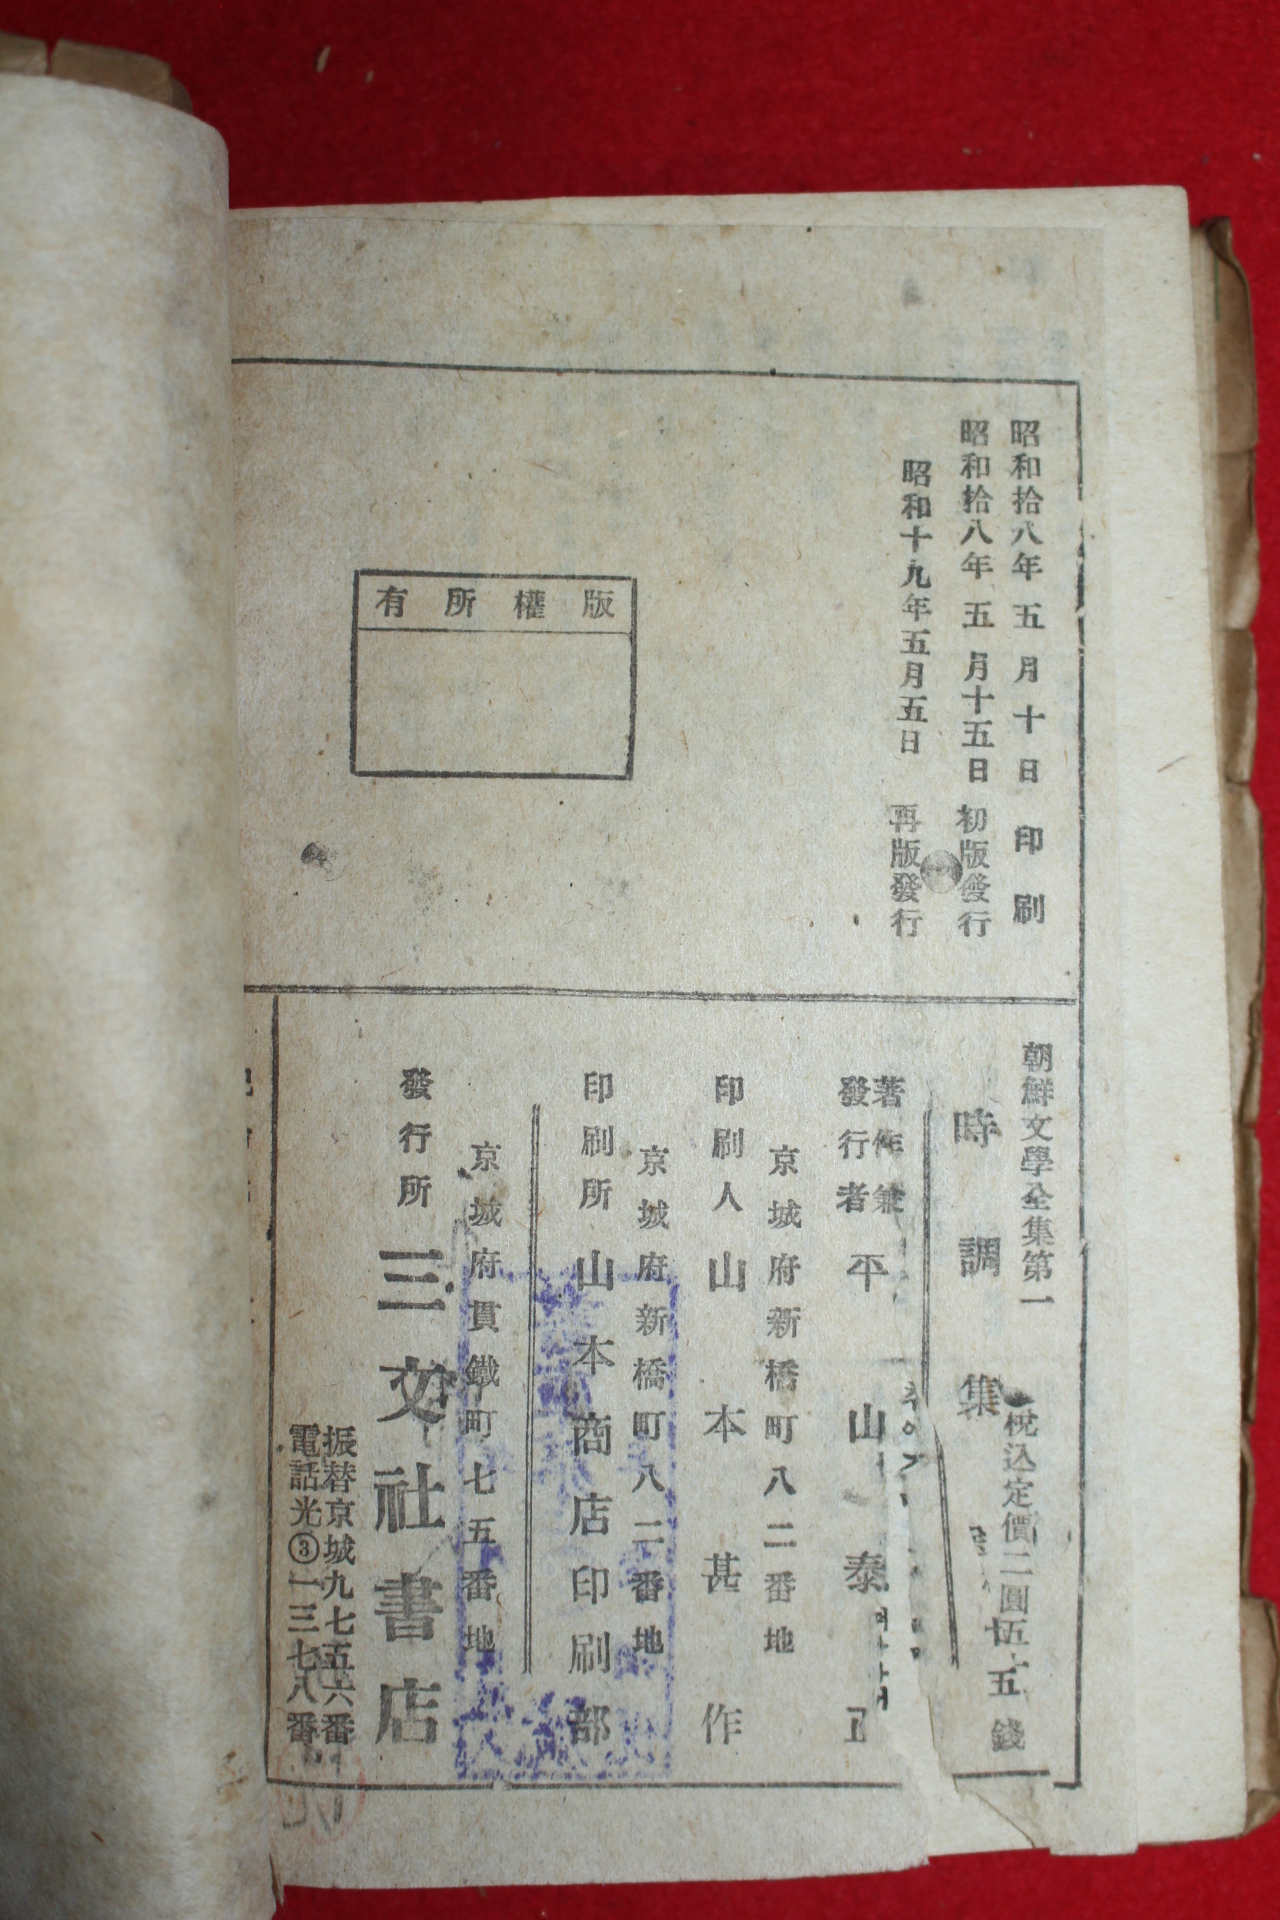 昭和拾八年五月十日印刷
昭和拾八年五月十五日初版發行
昭和十九年五月五日再版發行
版權所有
朝鮮文學全集第一
時調集
税込定價二圓伍十五錢
著作兼
發行者 平山泰正
京城府新橋町八二番地
印刷人 山本甚作
京城府新橋町八二番地
印刷所 山本商店印刷部
京城府貫鐵町七五番地
發行所 三文社書店
振替京城九七五六番
電話光③一三七八番